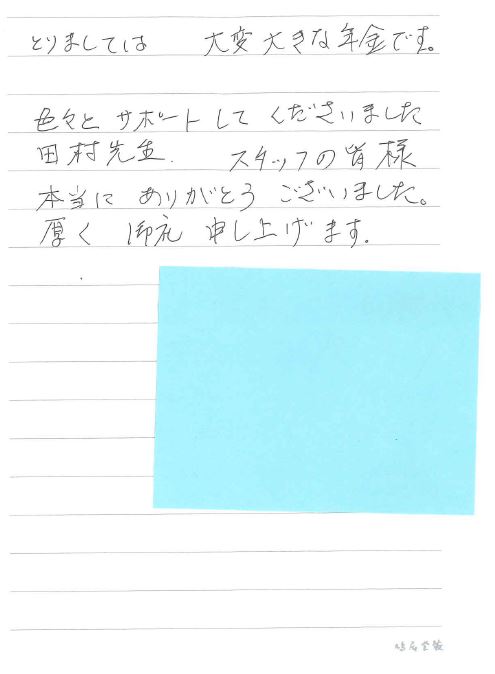 とりましては 大変大きな年金です。
色々と サポート して くださいました
田村先生. スタッフの皆様
本当に ありがとう ございました。
厚く 御礼 申し上げます.
鳩居堂製